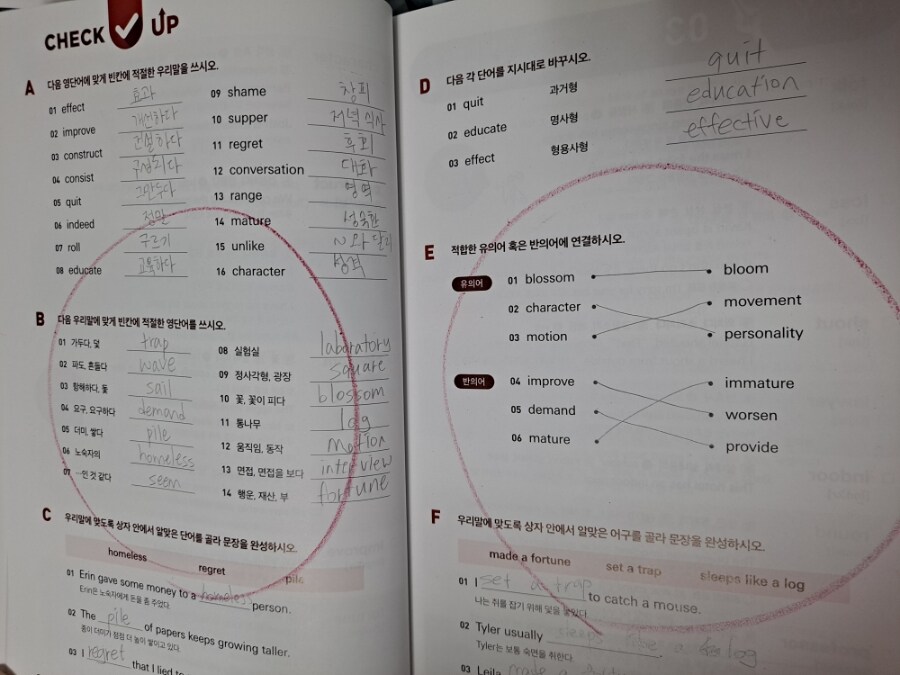 CHECK UP
A 다음 영단어에 맞게 빈칸에 적절한 우리말을 쓰시오.
01 effect 효과
02 improve 개선하다
03 construct 건설하다
04 consist 구성되다
05 quit 그만두다
06 indeed 정말
07 roll 구르기
08 educate 교육하다
09 shame 창피
10 supper 저녁 식사
11 regret 후회
12 conversation 대화
13 range 영역
14 mature 성숙한
15 unlike ~와 달리
16 character 성격
B 다음 우리말에 맞게 빈칸에 적절한 영단어를 쓰시오.
01 가두다, 덫 trap
02 파도, 흔들다 wave
03 항해하다, 돛 sail
04 요구, 요구하다 demand
05 더미, 쌓다 pile
06 노숙자의 homeless
07 …인 것 같다 seem
08 실험실 laboratory
09 정사각형, 광장 square
10 꽃, 꽃이 피다 blossom
11 통나무 log
12 움직임, 동작 motion
13 면접, 면접을 보다 interview
14 행운, 재산, 부 fortune
C 우리말에 맞도록 상자 안에서 알맞은 단어를 골라 문장을 완성하시오.
homeless regret pile
01 Erin gave some money to a homeless person.
Erin은 노숙자에게 돈을 좀 주었다.
02 The pile of papers keeps growing taller.
종이 더미가 점점 더 높이 쌓이고 있다.
03 I regret that I lied to
D 다음 각 단어를 지시대로 바꾸시오.
01 quit 과거형 quit
02 educate 명사형 education
03 effect 형용사형 effective
E 적합한 유의어 혹은 반의어에 연결하시오.
유의어
01 blossom bloom
02 character movement
03 motion personality
반의어
04 improve immature
05 demand worsen
06 mature provide
F 우리말에 맞도록 상자 안에서 알맞은 어구를 골라 문장을 완성하시오.
made a fortune set a trap sleeps like a log
01 I set a trap to catch a mouse.
나는 쥐를 잡기 위해 덫을 놓았다.
02 Tyler usually sleeps like a log
Tyler는 보통 숙면을 취한다.
03 Leila made a